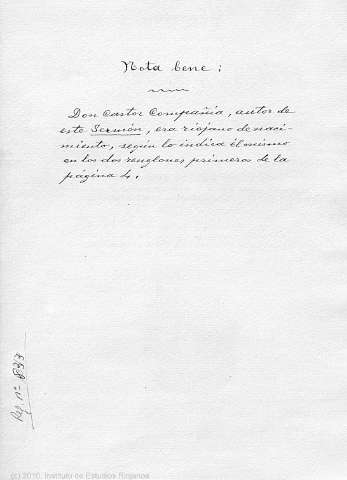 Nota bene:
Don Castor Compañía, autor de
este Sermón, era riojano de naci-
miento, según lo indica él mismo
en los dos renglones primeros de la
página 4.
Rg. nº 833
(c) 2010, Instituto de Estudios Riojanos